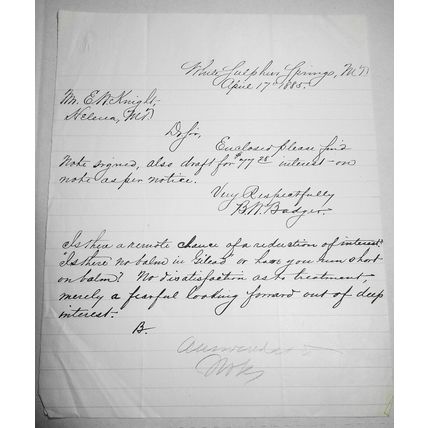 White Sulphur Springs, M.T.
April 17th 1885.
Mr. E. W. Knight,
Helena, M.T.
Dr Sir,
Enclosed please find
Note signed, also draft for $77 25 interest on
note as per notice.
Very Respectfully
B. N. Badger.
Is there a remote chance of a reduction of interest?
"Is there no balm in Gilead" or have you run short
on balm? No disatisfaction as to treatment,
merely a fearful looking forward out of deep
interest.
B.
Answered